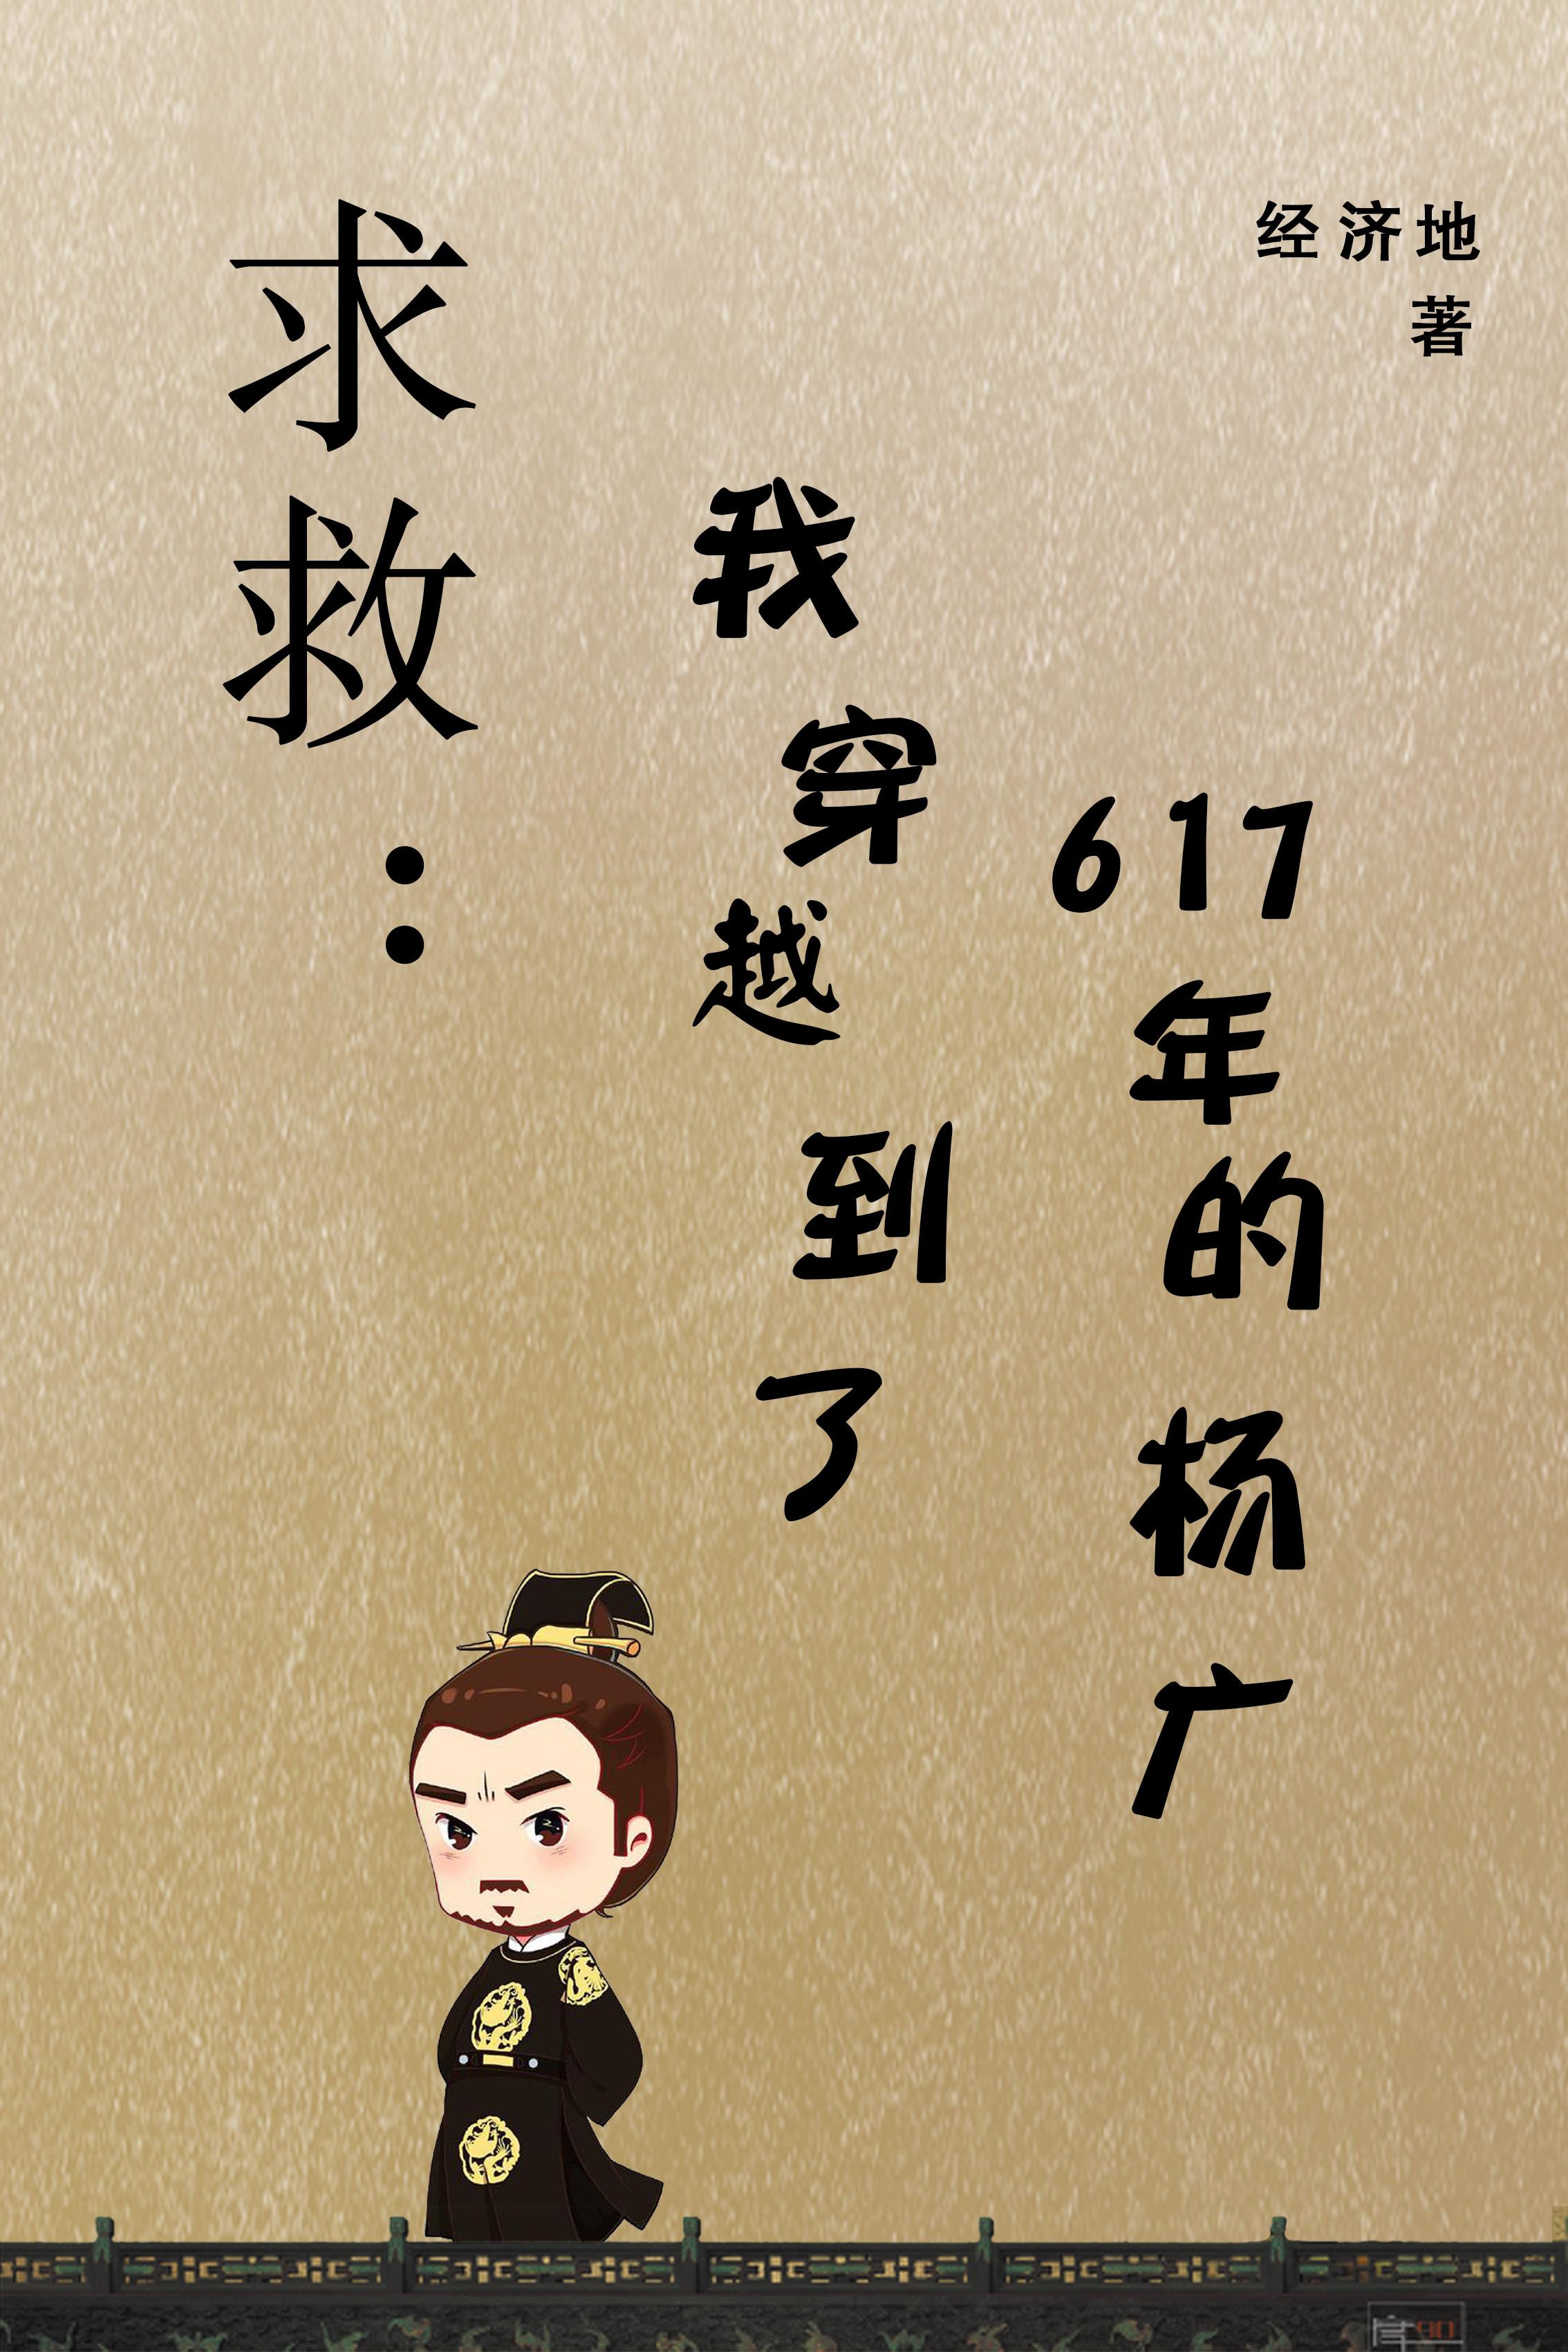 求救：
我穿越到了
617年的杨广
经济地
著